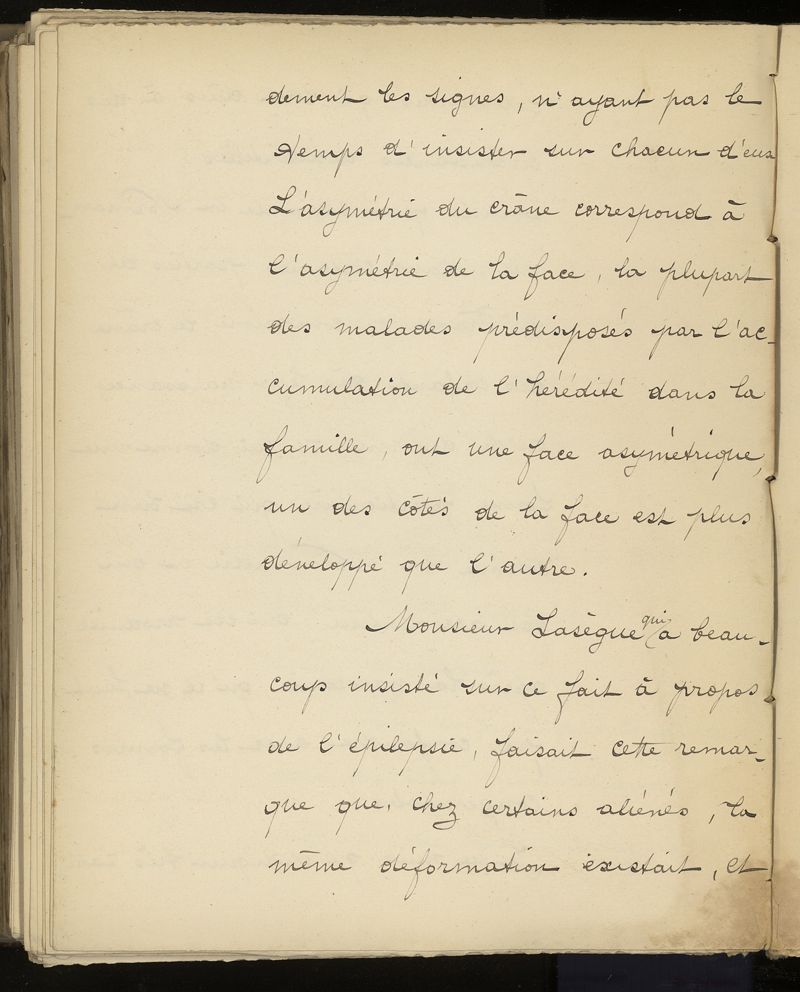 dement les signes, n'ayant pas le
temps d'insister sur chacun d'eux
L'asymétrie du crâne correspond à
l'asymétrie de la face, la plupart
des malades prédisposés par l'ac-
cumulation de l'hérédité dans la
famille, ont une face asymétrique,
un des côtés de la face est plus
développé que l'autre.
Monsieur Lasègue qui a beau-
coup insisté sur ce fait à propos
de l'épilepsie, faisait cette remar-
que que, chez certains aliénés, la
même déformation existait, et